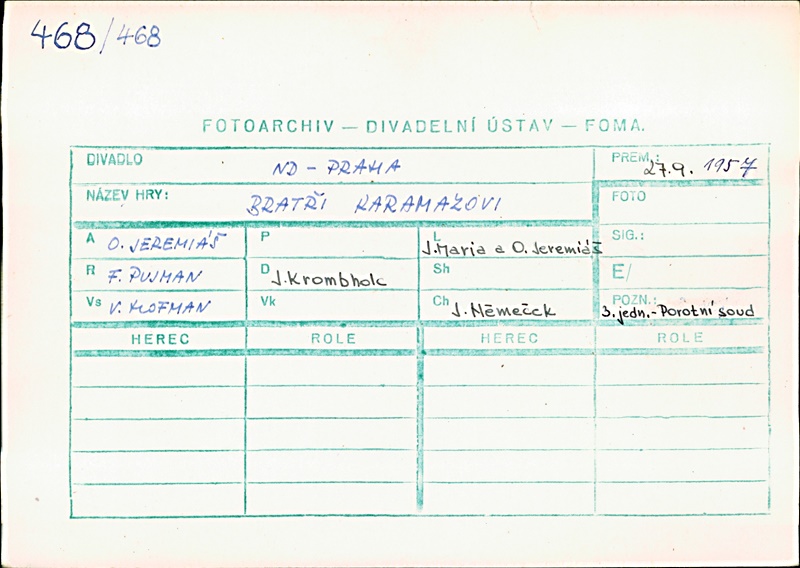 468/468
FOTOARCHIV — DIVADELNÍ ÚSTAV — FOMA.
DIVADLO ND - PRAHA PREM.: 27.9. 1957
NÁZEV HRY: BRATŘI KARAMAZOVI FOTO
A O. JEREMIÁŠ P L J. Maria a O. Jeremiáš SIG.:
R F. PUJMAN D J. Krombholc Sh E/
Vs V. HOFMAN Vk Ch J. Němeček POZN.: 3. jedn. - Porotní soud
HEREC ROLE HEREC ROLE